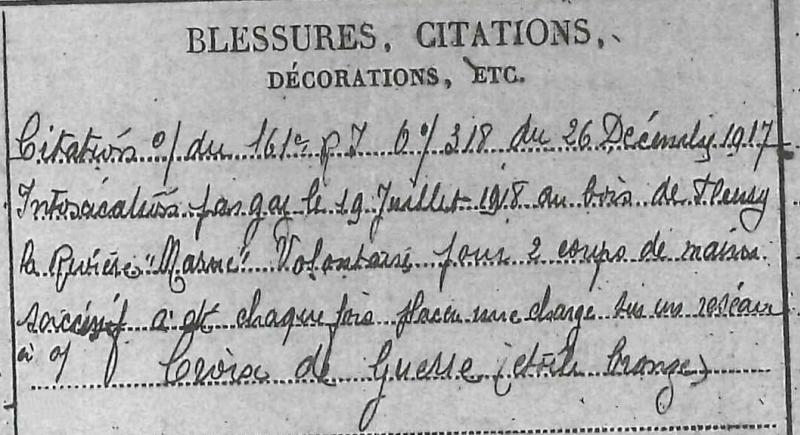 BLESSURES, CITATIONS,
DÉCORATIONS, ETC.
Citation o/ du 161e R I O o/ 318 du 26 Décembre 1917
Intoxication par gaz le 19 Juillet 1918 au bois de Fleury
la Rivière "Marne" Volontaire pour 2 coups de mains
successif a été chaque fois placer une charge sur un réseau
Croix de Guerre (étoile bronze)